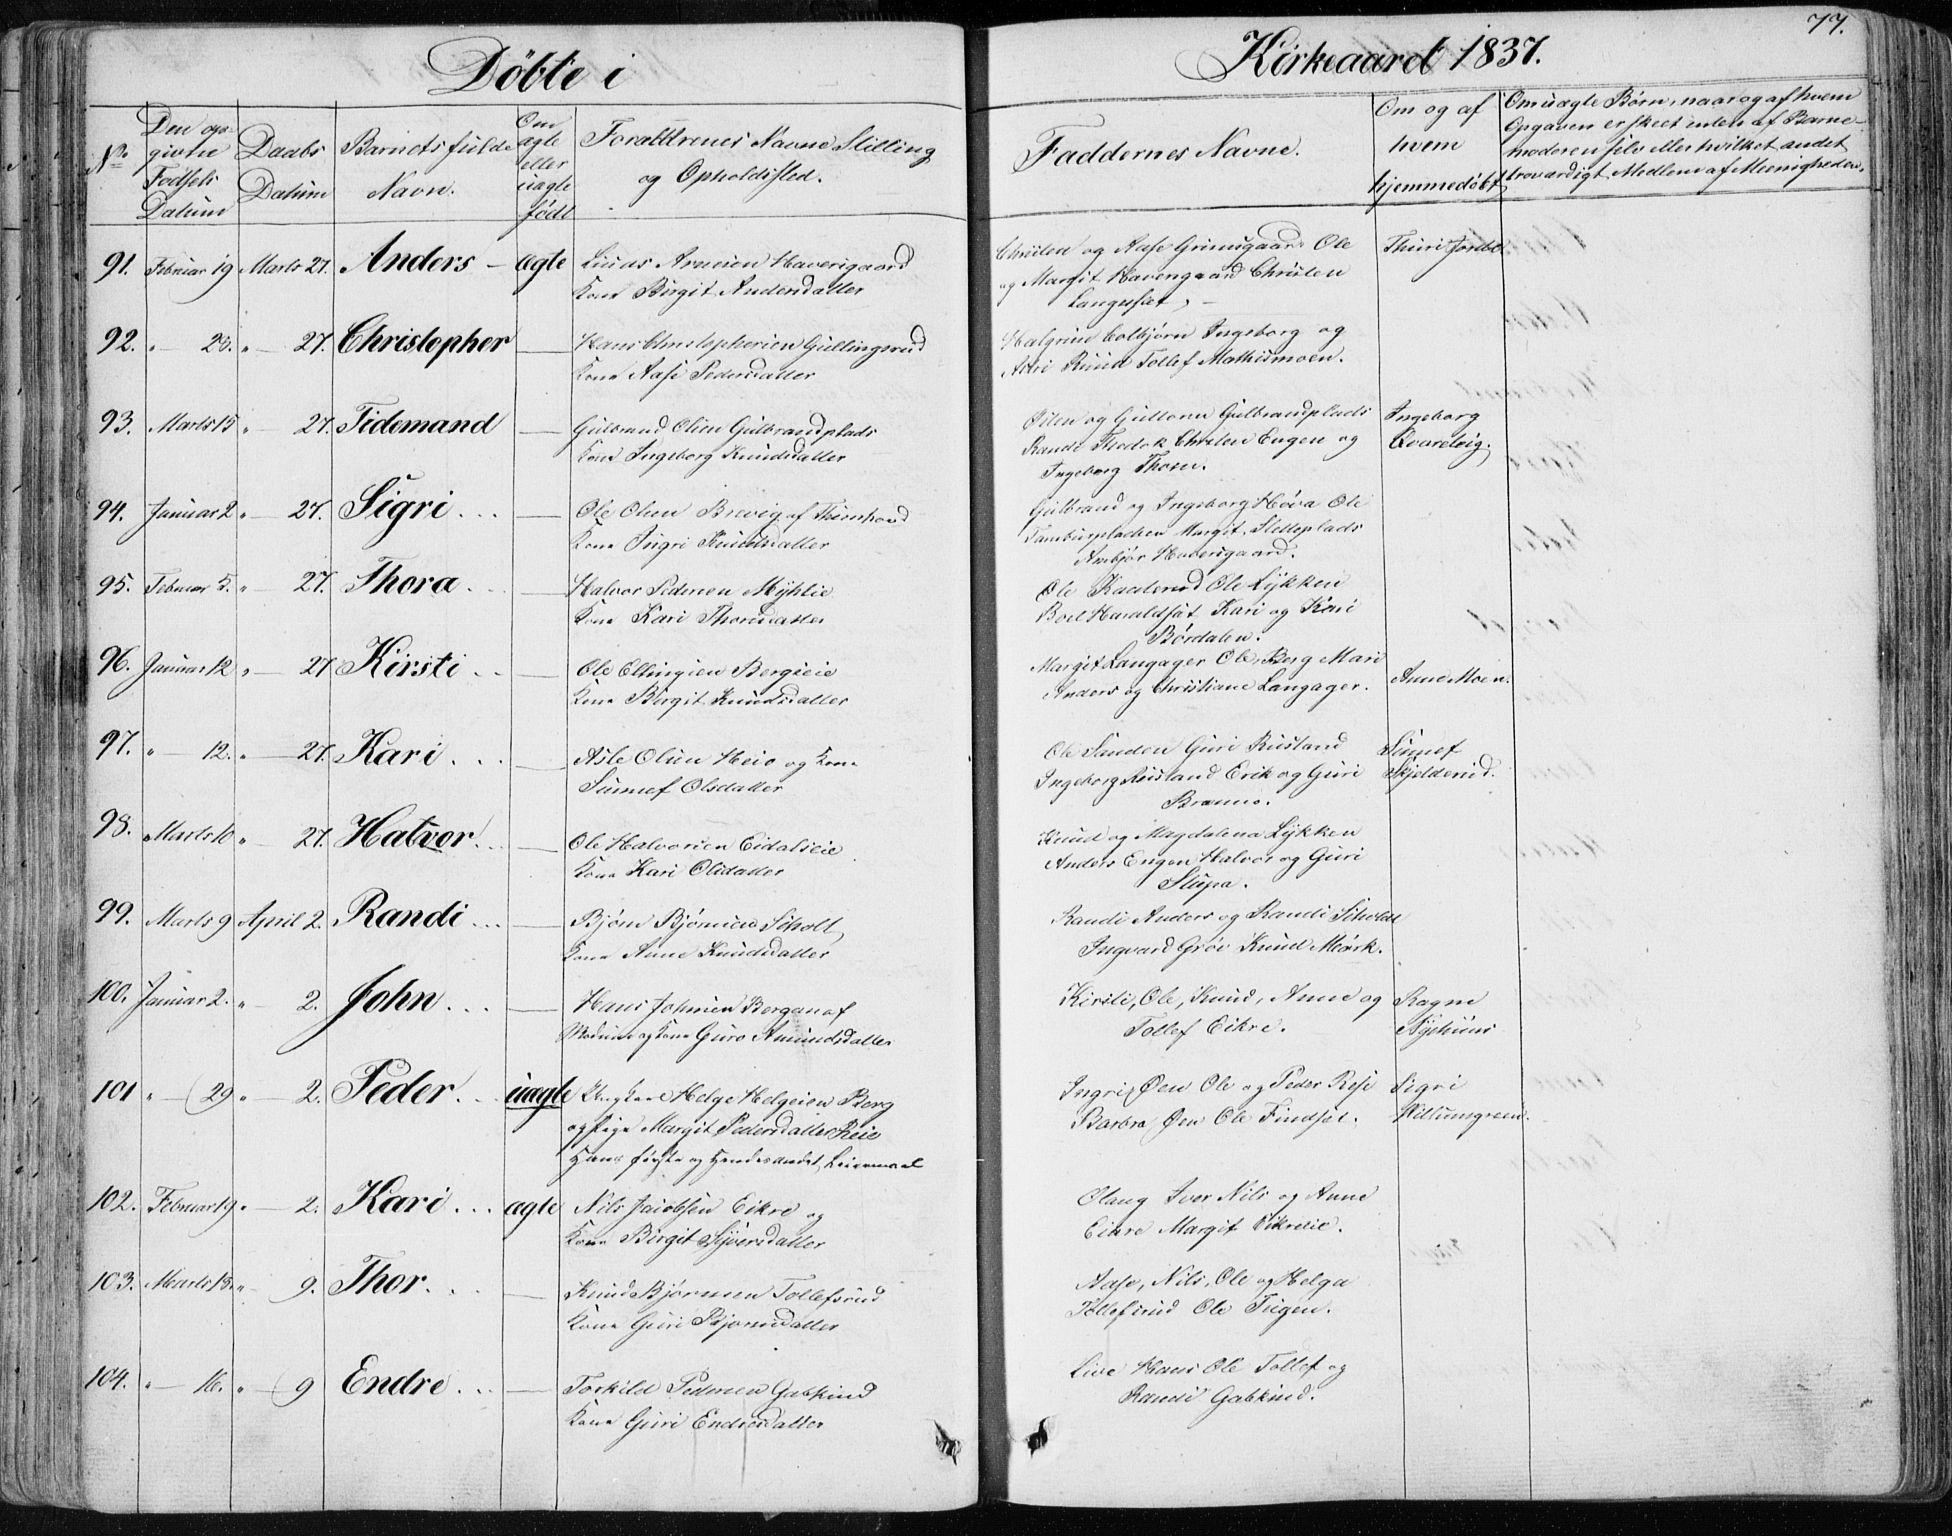 77.
Döbte i Kirkeaaret 1837.
No
Den op=
givne
Födsels
Datum
Daabs
Datum
Barnets fulde
Navn.
Om
ægte
eller
uægte
födt
Forældrenes Navne Stilling
og Opholdssted.
Faddernes Navne.
Om og af
hvem
hjemmedöbt
Om uægte Børn, naar og af hvem
Opgaven er skeet enten af Barne-
moderen selv eller hvilket andet
troværdigt Medlem af Meenigheden.
91. Februar 19 Marts 27. Anders - ægte
Kone Birgit Andersdatter
Christen og Aase Grimsgaard Ole
og Margit Haversgaard Christen
Langeset, -
Thuri Jordet
92. " 23. " 27. Christopher
Hans Christophersen Gullingsrud
Kone Aase Pedersdatter
Halgrim Colbjörn Ingeborg og
Astri Ruud Tollef Mathismoen.
93. Marts 15 " 27. Tidemand
Gulbrand Olsen Gulbrandplads
Kone Ingeborg Knudsdatter
Østen og Guttorm Gulbrandplads
Randi Christen Engen og
Ingeborg Thoen.
Ingeborg
Qvarelvig.
94. Januar 2 " 27. Sigri . . .
Ole Olsen Brevig af
Kone Ingri Knudsdatter
Gulbrand og Ingeborg Höva Ole
Margit Sletteplads
Ambjør Haversgaard.
95. Februar 5. " 27. Thora . . .
Halvor Pedersen Myhlie
Kone Kari Thorsdatter
Ole Ole Lykken
Boel Haraldset Kari og Kari
Bördalen.
96. Januar 12 " 27 Kirsti . .
Ole Ellingsen Bergseie
Kone Birgit Knudsdatter
Margit Langager Ole Berg Mari
Anders og Christiane Langager.
Anne Moen.
97. " 12. " 27. Kari . . .
Asle Olsen Heio og Kone
Sünnef Olsdatter
Ole Sanden Guri Rusland
Ingeborg Rusland Erik og Guri
Bromo.
Sünnef
Skjelderud.
98. Marts 10 " 27. Halvor. . .
Ole Halvorsen Eidalseie
Kone Kari Olsdatter
Knud og Magdalena Lykken
Anders Engen Halvor og Guri
Stupa.
99. Marts 9 April 2. Randi . . .
Björn Björnsen Scholt,
Kone Anne Knudsdatter
Randi Anders og Randi Scholt
Ingvard Gröe Knud Mörk.
100. Januar 2. " 2. John . . .
Hans Johnsen Bergan af
Modum og Kone Guro Amundsdatter
Kirsti, Ole, Knud, Anne og
Tollef Eikre.
Ragne
Nyehuus
101 " 29 " 2. Peder . . uægte
Ungkarl Helge Helgesen Berg
og Pige Margit Pedersdatter Reie
Hans förste og Hendes andet Leiermaal
Ingri Øen Ole og Peder Reie
Barbra Øen Ole Findset.
Sigri
Villumgreen.
102. Februar 19 " 2. Kari . . . ægte
Nils Jacobsen Eikre og
Kone Birgit Syversdatter
Olaug Iver Nils og Anne
Eikre Margit Eikreeie.
103. Marts 13. " 9. Thor. . .
Knud Björnsen Tollefsrud
Kone Guri Björnsdatter
Aase, Nils, Ole og Helga
Tollefsrud Ole Tugen.
104. " 16. " 9 Endre . . .
Torkild Pedersen Gabkind
Kone Guri Endresdatter
Live Hans Ole Tollef og
Randi Gabkind.